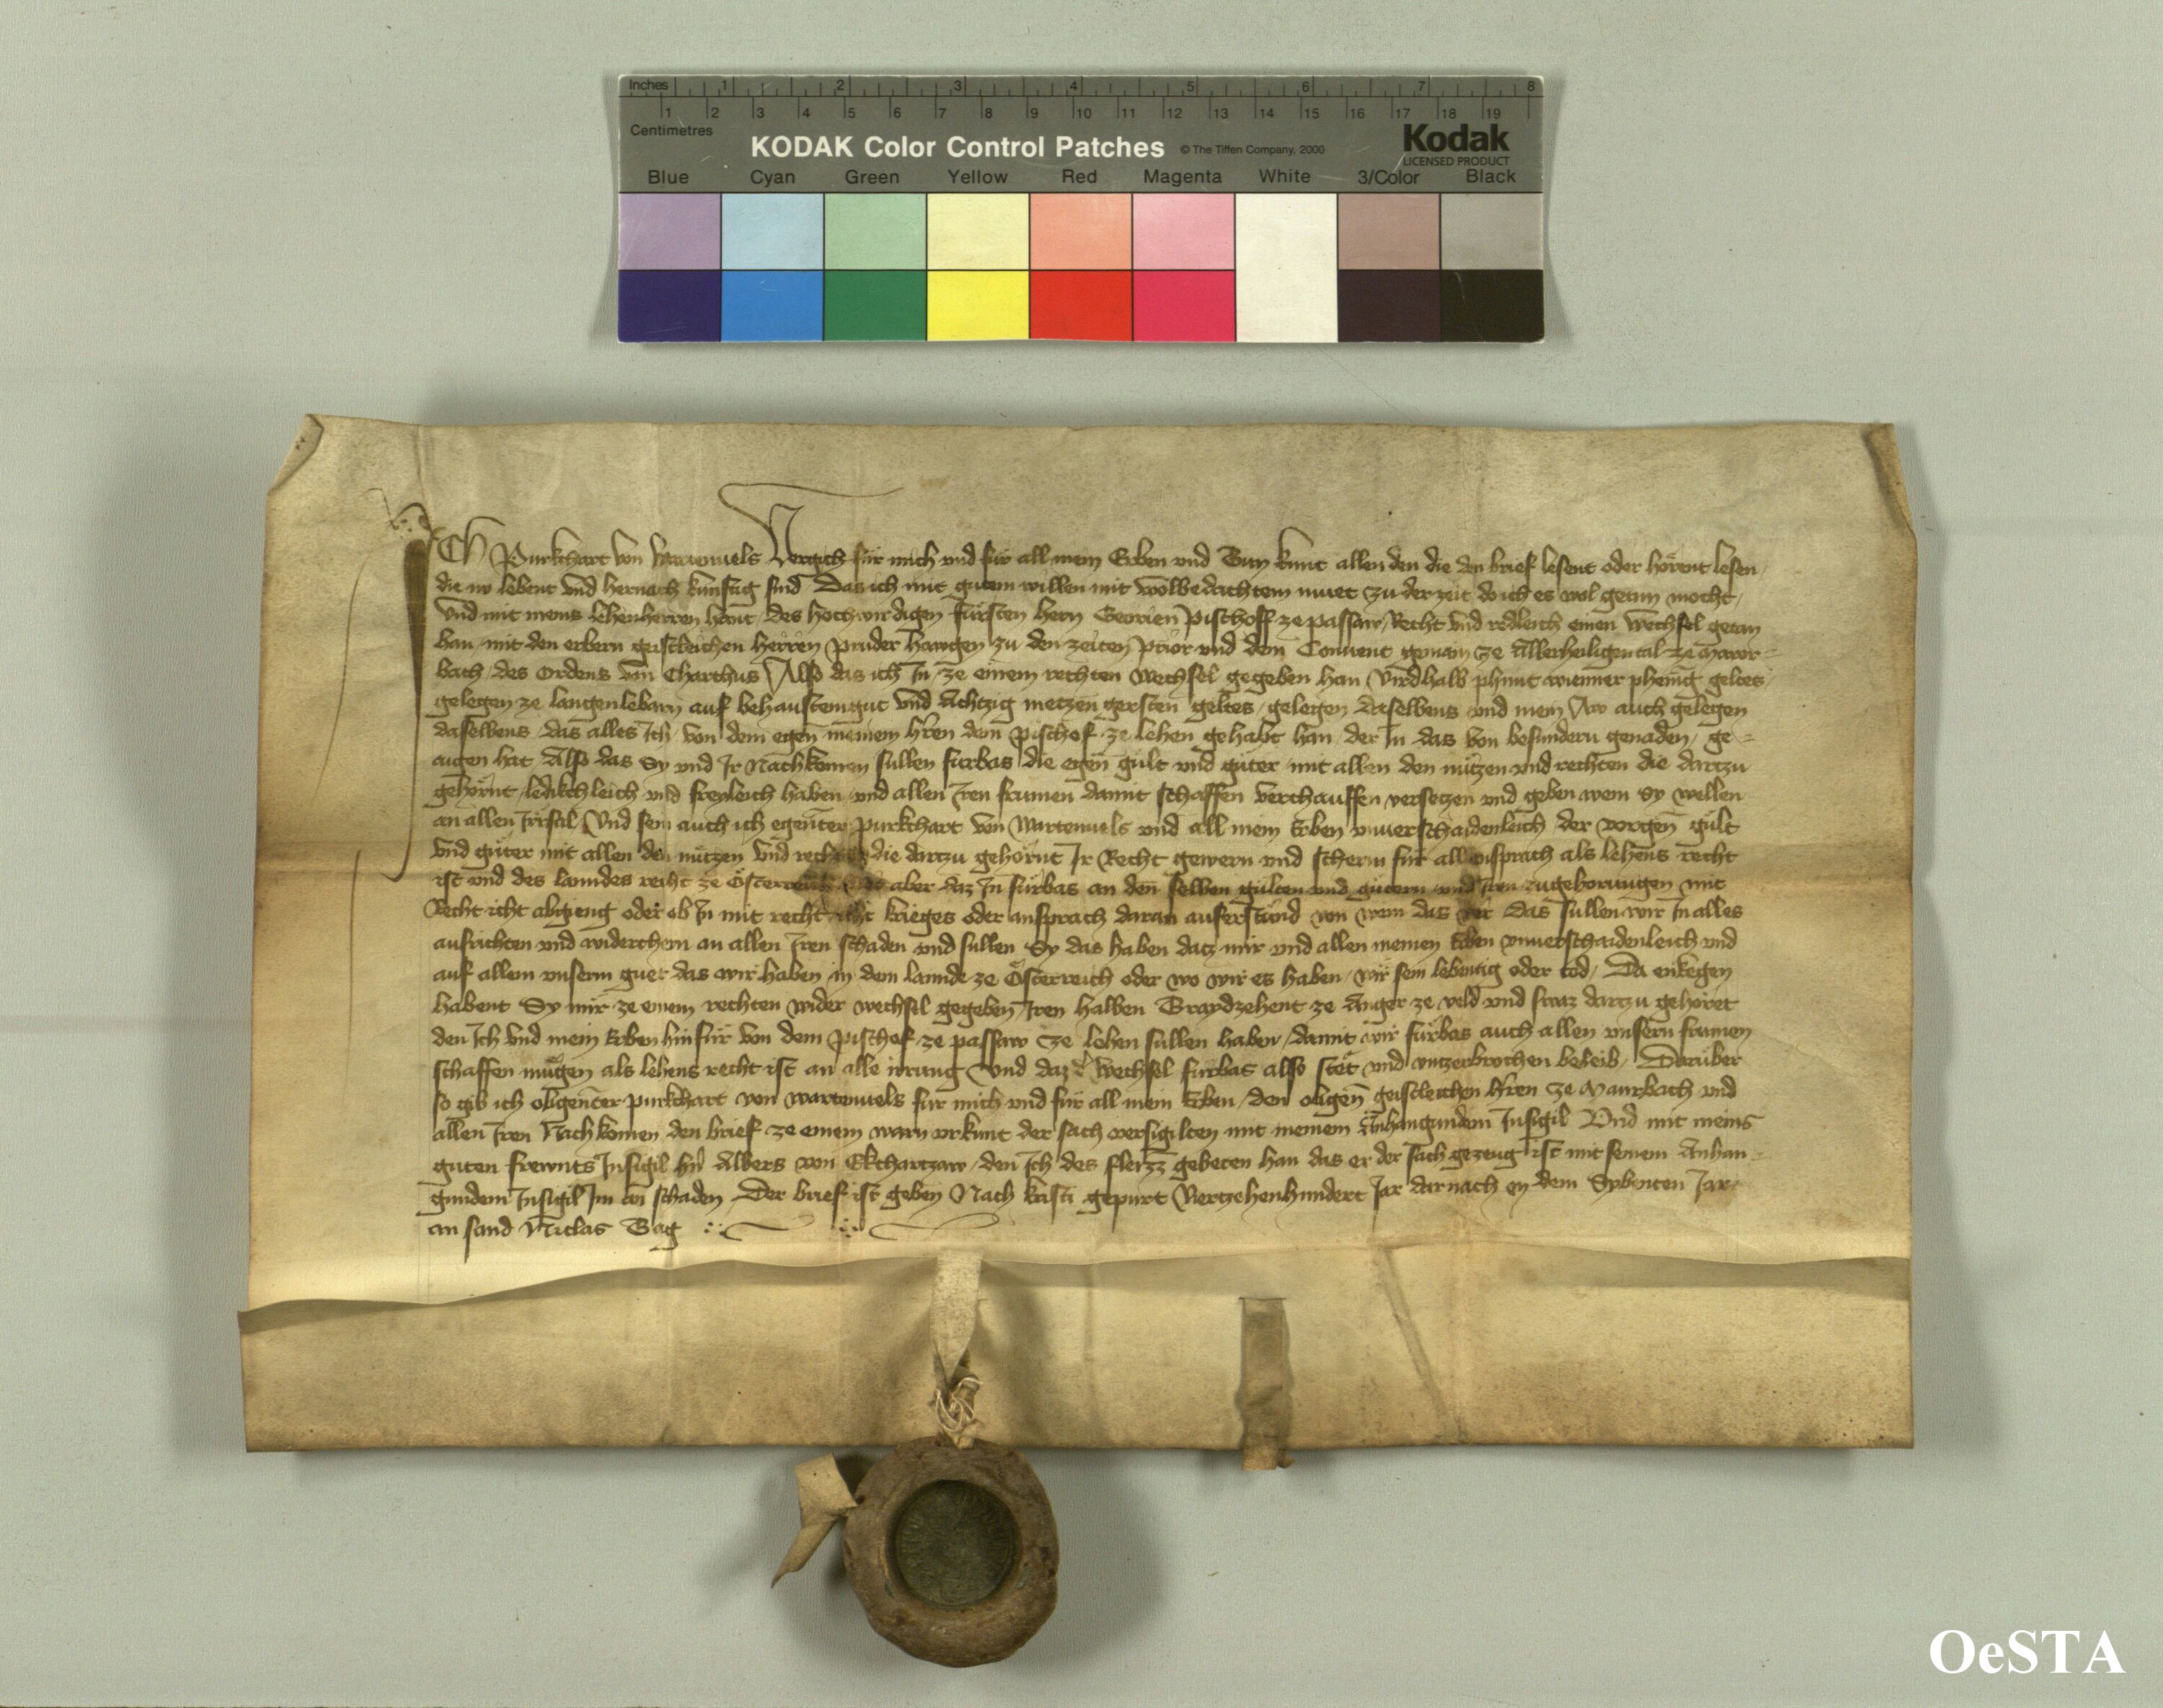 Inches 1 2 3 4 5 6 7 8
1 2 3 4 5 6 7 8 9 10 11 12 13 14 15 16 17 18 19
Centimetres
KODAK Color Control Patches © The Tiffen Company, 2000 Kodak
LICENSED PRODUCT
Blue Cyan Green Yellow Red Magenta White 3/Color Black
ICh Purkchart von Wartenuels Vergich für mich und für all mein Erben und Tun kunt allen den die den brief lesent oder hörent lesen
die nu lebent und hernach künftig sind Das ich mit gutem willen mit wolbedachtem muet zu der zeit do ich es wol getun mocht
Und mit meins lehenherren hant des hochwirdigen Fürsten hern Georien Pischoff ze passaw Recht und redleich einen Wechsel getan
han mit den erbern geistleichen herren pruder hansen zu den zeiten prior und dem Conuent gemain ze Allerheiligental ze Mawr-
bach des Ordens von Charthus Also das ich In ze einem rechten Wechsel gegeben han Virdhalb phunt wienner phenig geltes
gelegen ze langenlebarn auf behaustem gut und Achtzig metzen gersten geltes gelegen daselbens und mein Aw auch gelegen
daselbens das alles Ich von dem egen meinem hren dem pischof ze lehen gehabt han der In das von besundern genaden ge-
aigen hat Also das Sy und Ir Nachkomen sullen fürbas die egen gült und güter mit allen den nützen und rechten die dartzu
gehörnt ledikchleich und freyleich haben und allen Iren frumen damit schaffen verchauffen versetzen und geben wem Sy wellen
an allen Irrsal Und sein auch ich egenter purkchart von Wartenuels und all mein Erben unuerschaidenleich der vorgen gült
Und güter mit allen den nützen und rechten die dartzu gehörnt Ir Recht gewern und scherm für all ansprach als lehens recht
ist und des lanndes recht ze Österreich aber daz In fürbas an den selben gülten und gütern und Iren zugehorungen mit
Recht icht abgieng oder ob In mit recht icht krieges oder ansprach daran auferstünd von wem das wer das sullen wir In alles
ausrichten und widerchern an allen Iren schaden und sullen Sy das haben datz mir und allen meinen Erben unuerschaidenleich und
auf allem unserm guet das wir haben in dem lannde ze Österreich oder wo wir es haben wir sein lebentig oder tod Da enkegen
habent Sy mir ze einem rechten wider wechsel gegeben Iren halben Traydzehent ze Anger ze veld und swaz dartzu gehöret
den Ich und mein Erben hinfür von dem Pischof ze passaw ze lehen sullen haben damit wir fürbas auch allen unsern frumen
schaffen mügen als lehens recht ist an alle irrung Und daz der Wechsel fürbas also stet und unzerbrochen beleib Darüber
so gib ich obgenter purkchart von Wartenuels für mich und für all mein Erben den obgen geistleichen hren ze Maurbach und
allen Iren Nachkomen den brief ze einem warn urkunt der sach versigilten mit meinem Anhangundem Insigil Und mit meins
guten frewnts Insigil hern Albers von Ekchartzaw den Ich des fleizz gebeten han das er der sach gezeug ist mit seinem Anhan-
gundem Insigil Im an schaden Der brief ist geben Nach kristi gepurt Viertzehenhundert Jar darnach in dem Sybenten Jar
an sand Niclas Tag
OeSTA